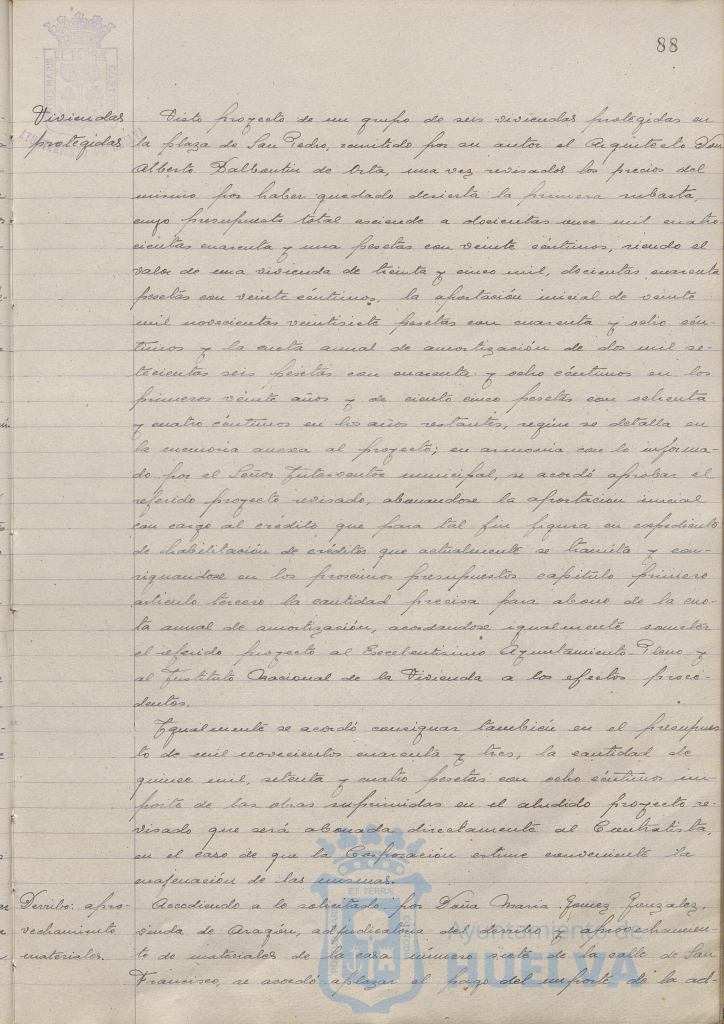 88
Viviendas
protegidas
Visto proyecto de un grupo de seis viviendas protegidas en
la plaza de San Pedro, remitido por su autor el Arquitecto Don
Alberto Balbontin de Orta, una vez revisados los precios del
mismo por haber quedado desierta la primera subasta,
cuyo presupuesto total asciende a docientas once mil cuatro-
cientas cuarenta y una pesetas con veinte céntimos, siendo el
valor de una vivienda de treinta y cinco mil, docientas cuarenta
pesetas con veinte céntimos, la aportación inicial de veinte
mil novecientas veintisiete pesetas con cuarenta y ocho cén-
timos y la cuota anual de amortización de dos mil se-
tecientas seis pesetas con cuarenta y ocho céntimos en los
primeros veinte años y de ciento cinco pesetas con ochenta
y cuatro céntimos en los años restantes, según se detalla en
la memoria anexa al proyecto; en armonia con lo informa-
do por el Señor Interventor municipal, se acordó aprobar el
referido proyecto revisado, abonandose la aportacion inicial
con cargo al crédito que para tal fin figura en expediente
de habilitación de créditos que actualmente se tramita y con-
signandose en los proximos presupuestos capitulo primero
articulo tercero la cantidad precisa para abono de la cuo-
ta anual de amortización, acordandose igualmente someter
el referido proyecto al Excelentisimo Ayuntamiento Pleno y
al Instituto Nacional de la Vivienda a los efectos proce-
dentes.
Igualmente se acordó consignar también en el presupues-
to de mil novecientos cuarenta y tres, la cantidad de
quince mil, setenta y cuatro pesetas con ocho céntimos im-
porte de las obras suprimidas en el aludido proyecto re-
visado que será abonada directamente al Contratista,
en el caso de que la Corporación estime conveniente la
enajenación de las mismas.
Derribo: apro-
vechamiento
materiales.
Accediendo a lo solicitado por Doña Maria Gomez Gonzalez,
viuda de Aragón, adjudicataria del derribo y aprovechamien-
to de materiales de la casa número siete de la calle de San
Francisco, se acordó aplazar el pago del importe de la ad-
Ayuntamiento de
HUELVA